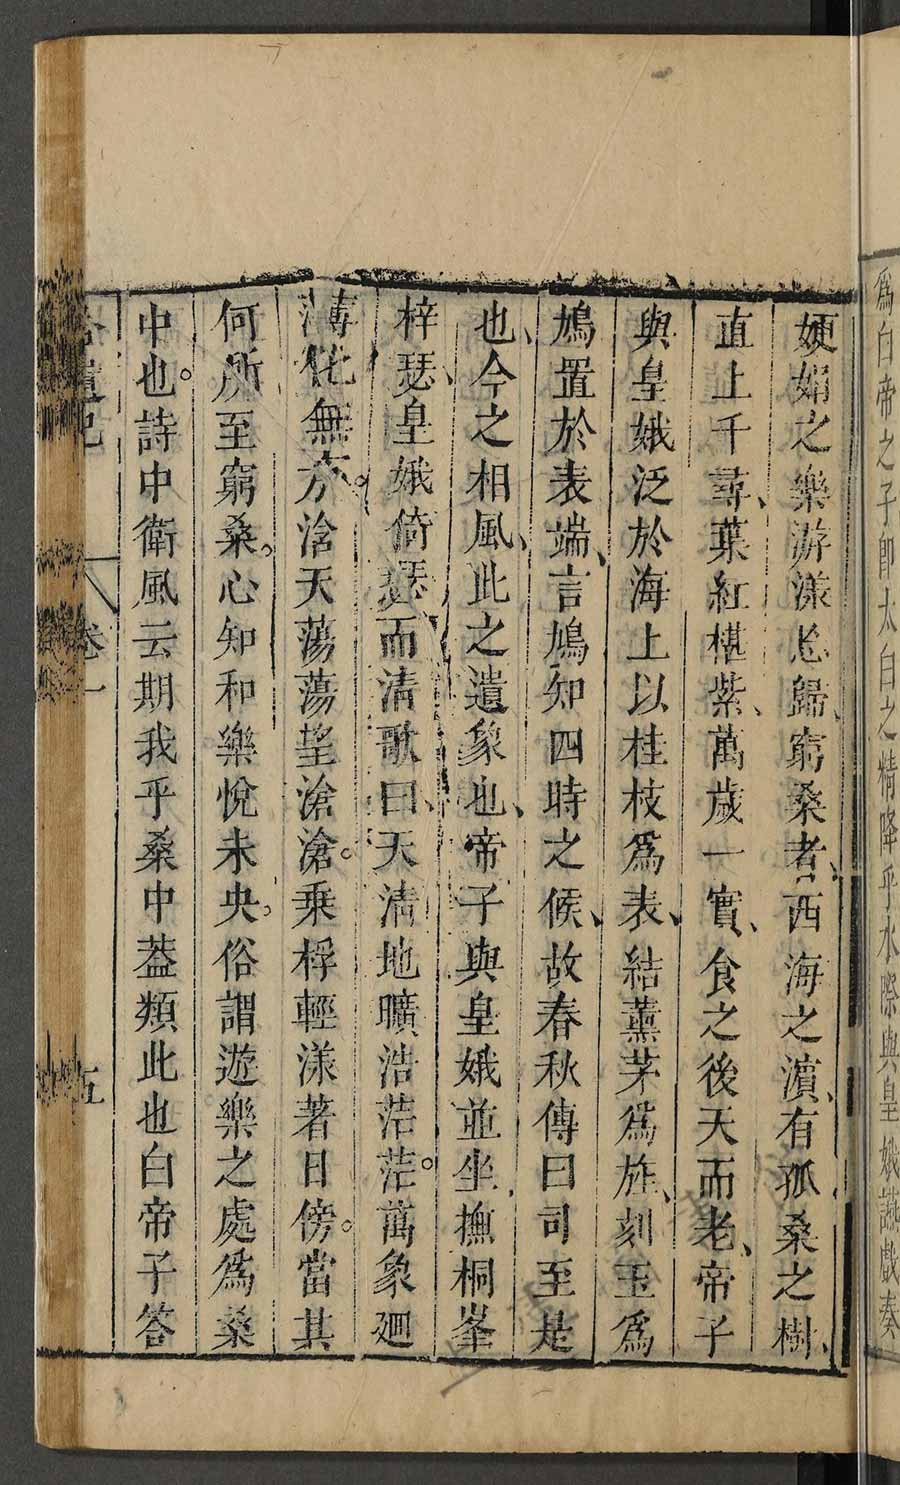 爲白帝之子即太白之精降乎水際與皇娥讌戲奏
㛹娟之樂游漾忘歸、窮桑者、西海之濵、有孤桑之樹、
直上千尋、葉紅椹紫、萬歲一實、食之後天而老、帝子
與皇娥泛於海上以桂枝爲表、結薰茅爲旌、刻玉爲
鳩置於表端、言鳩知四時之候、故春秋傳曰司至是
也、今之相風、此之遺象也、帝子與皇娥並坐撫桐峯
梓瑟、皇娥倚瑟而清歌曰、天清地曠浩茫茫。萬象廻
薄化無方。浛天蕩蕩望滄滄。乗桴輕漾著日傍。當其
何所至窮桑。心知和樂悅未央。俗謂遊樂之處爲桑
中也。詩中衛風云期我乎桑中葢類此也白帝子答
拾遺記 卷一 五